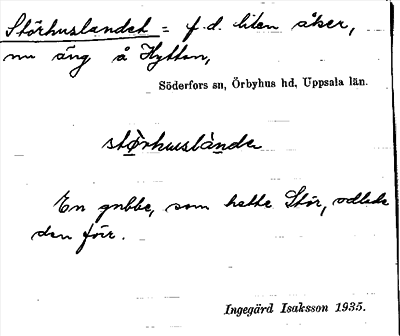 Störhuslandet = f.d. liten åker,
nu äng å Hyttön,
Söderfors sn, Örbyhus hd, Uppsala län.
störhuslànde
En gubbe, som hette Stör, odlade
den förr.
Ingegärd Isaksson 1935.